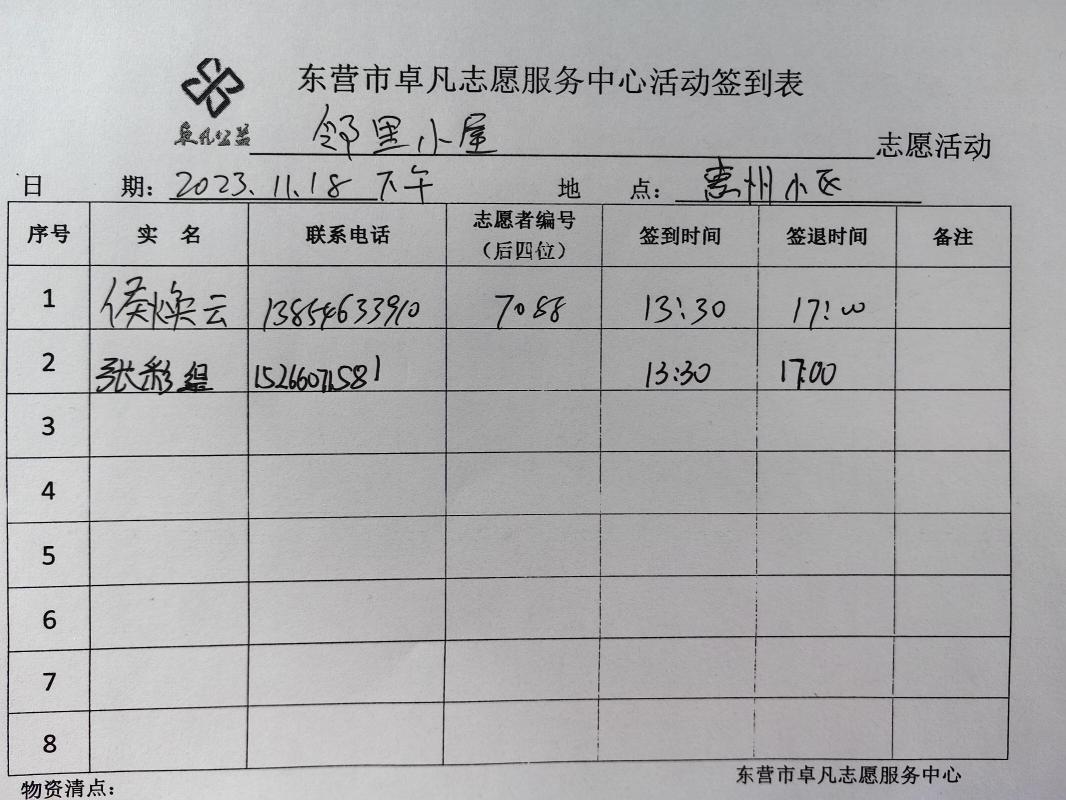 东营市卓凡志愿服务中心活动签到表
卓凡公益 邻里小屋 志愿活动
日 期：2023.11.18 下午 地 点：惠州小区
序号 实 名 联系电话 志愿者编号（后四位） 签到时间 签退时间 备注
1 侯焕云 13854633910 7088 13:30 17:00
2 张彩 15266071581 13:30 17:00
3
4
5
6
7
8
物资清点： 东营市卓凡志愿服务中心